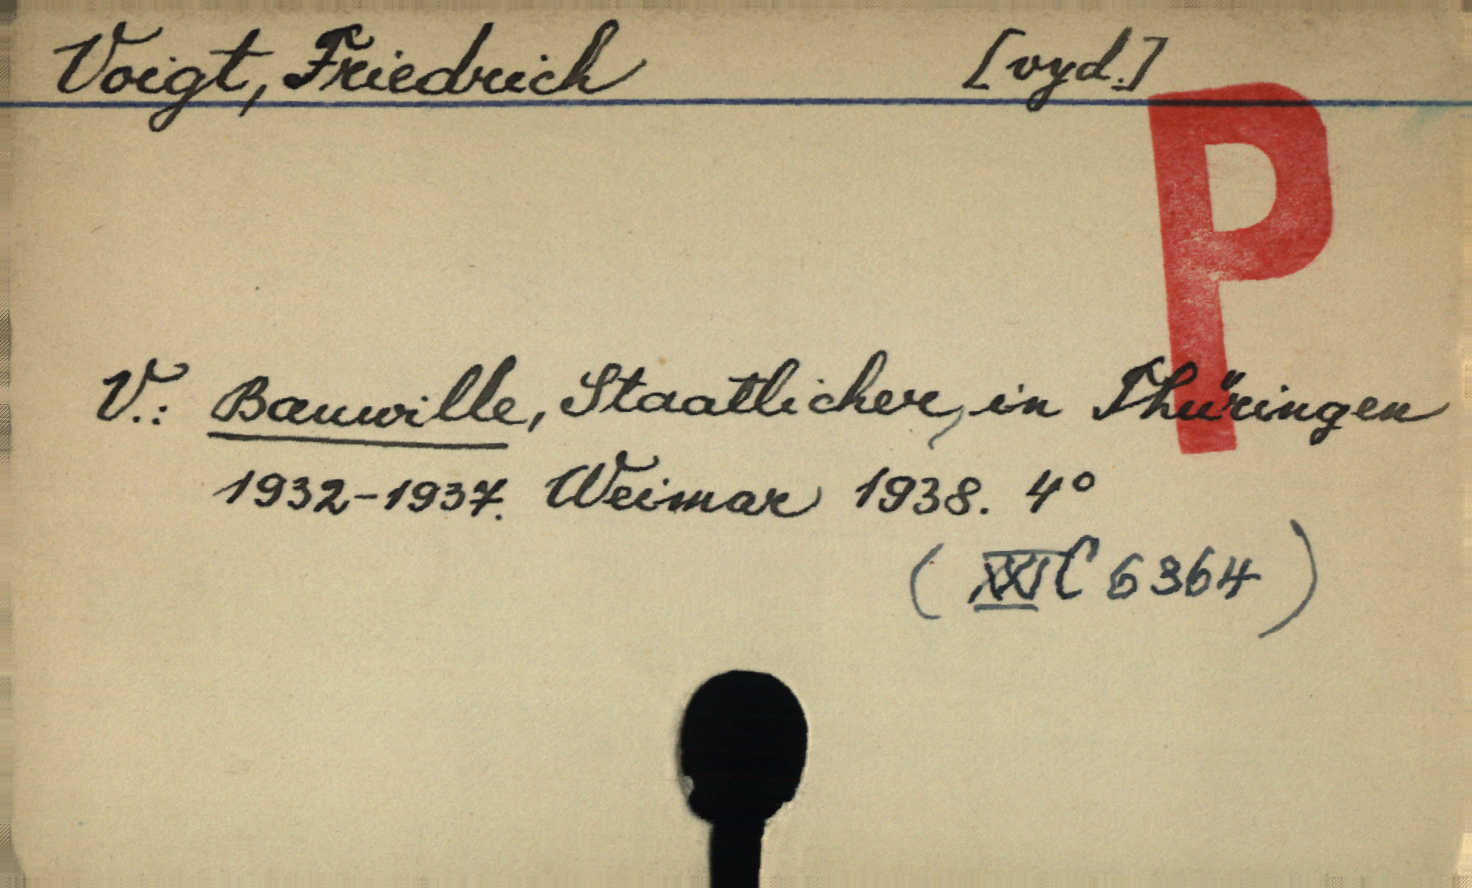 Voigt, Friedrich [vyd.]
P
V.: Bauwille, Staatlicher, in Thüringen
1932-1937. Weimar 1938. 4°
(XXI C 6364)